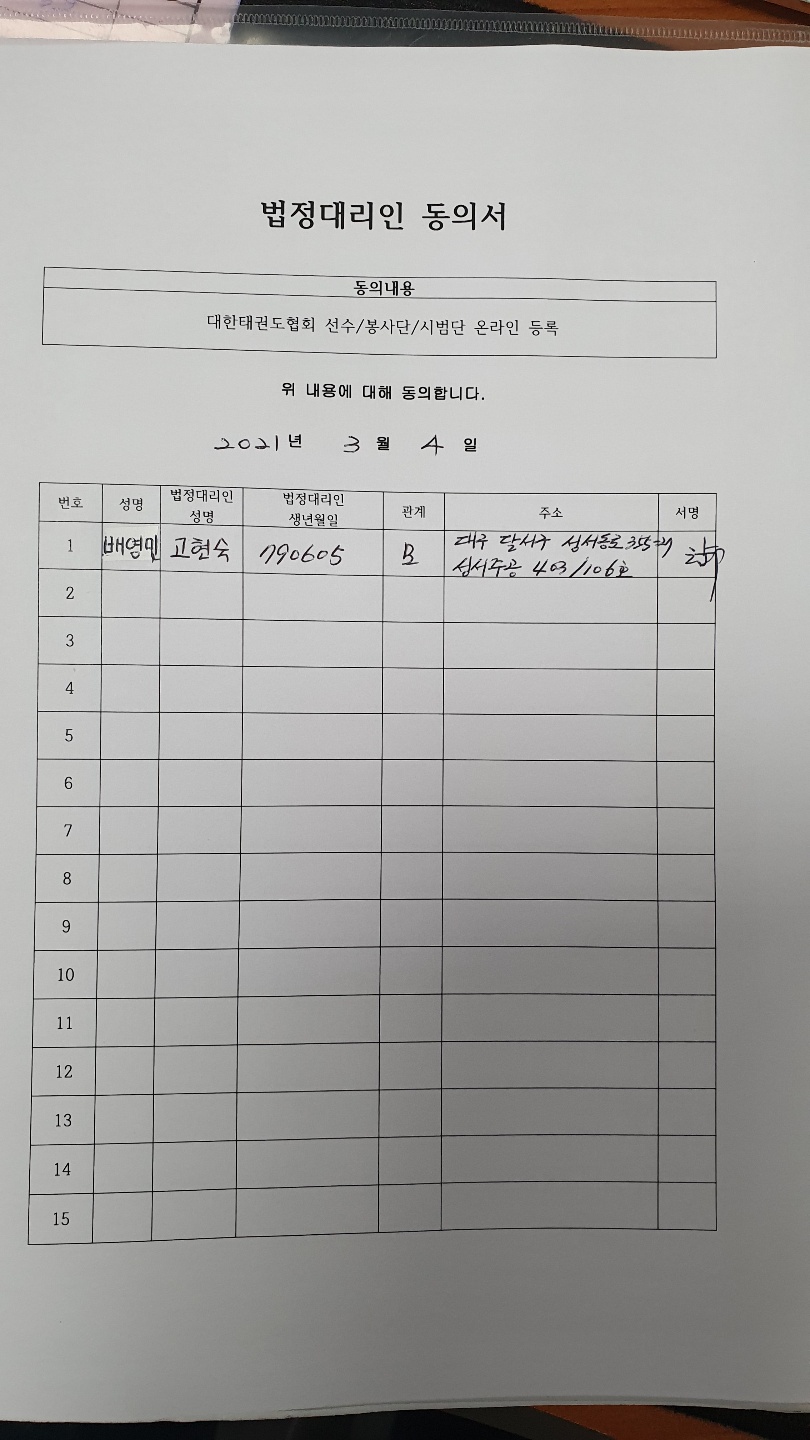 법정대리인 동의서
동의내용
대한태권도협회 선수/봉사단/시범단 온라인 등록
위 내용에 대해 동의합니다.
2021년 3 월 4 일
번호 성명 법정대리인 성명 법정대리인 생년월일 관계 주소 서명
1 배영민 고현숙 790605 모 대구 달서구 성서동로 355-
성서주공 403/106호
2
3
4
5
6
7
8
9
10
11
12
13
14
15